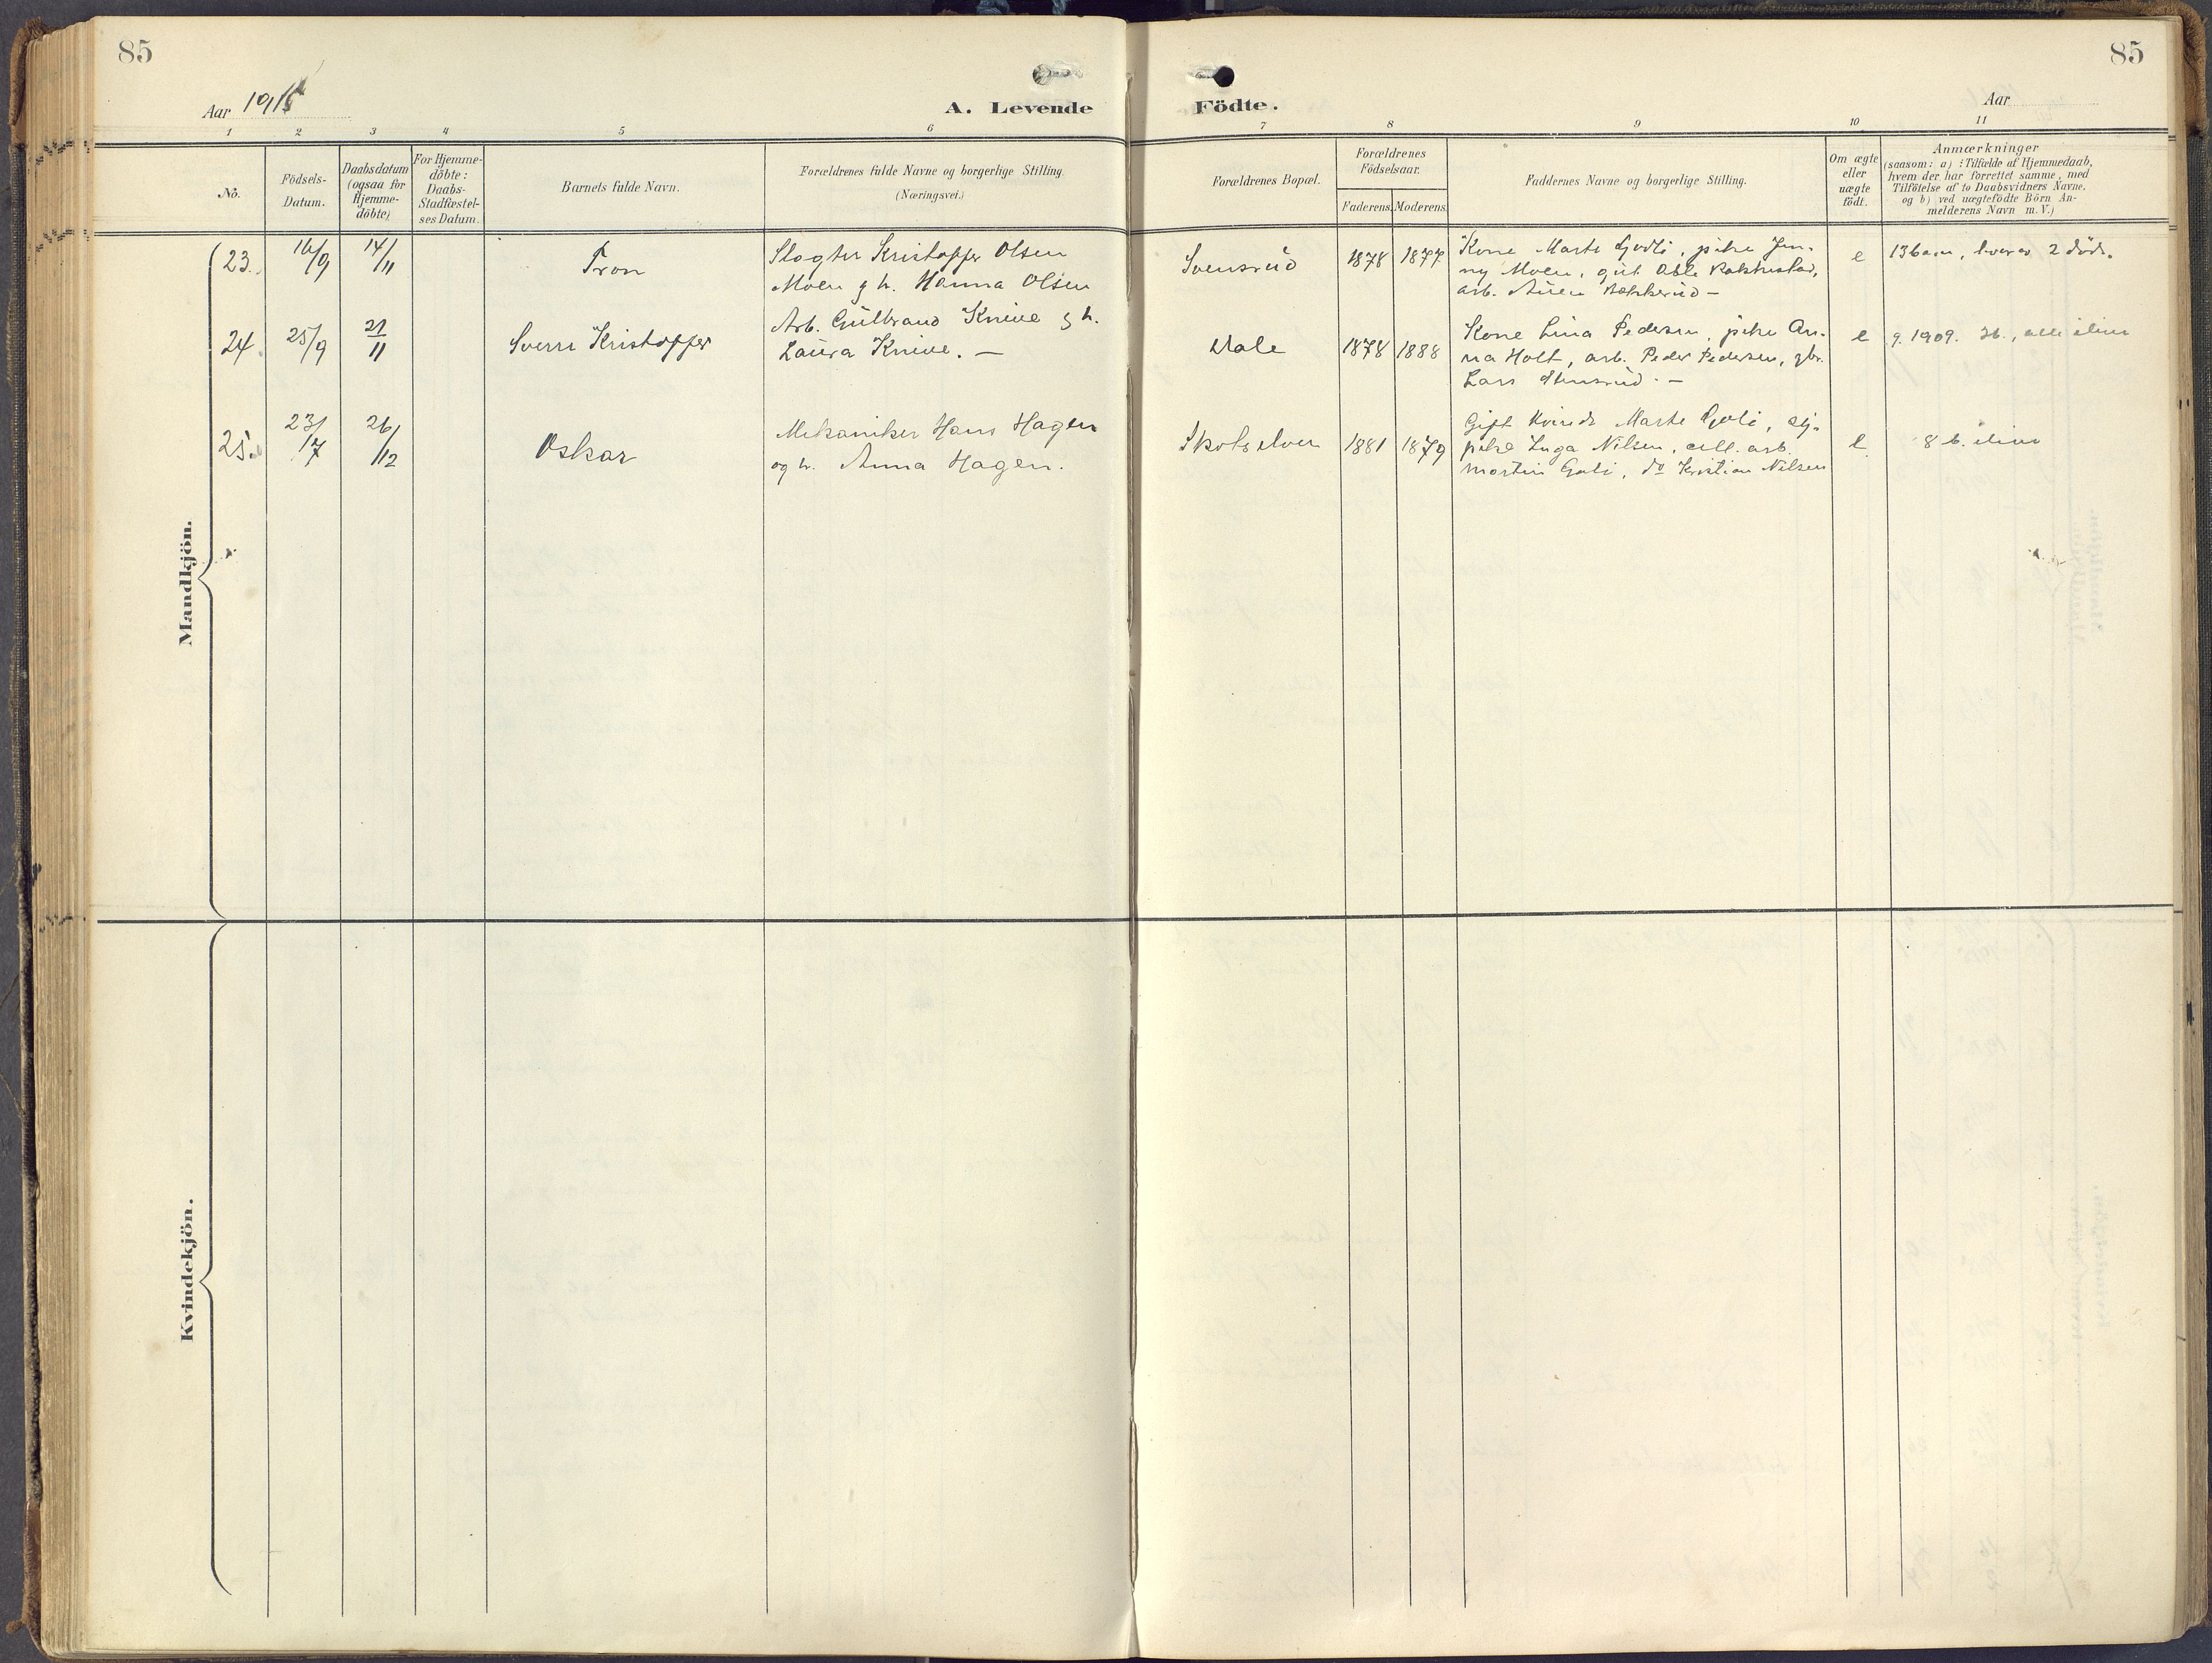 85
85
Aar 1915
A. Levende Födte.
Aar
1 2 3 4 5 6 7 8 9 10 11
No.
Födsels-
Datum.
Daabsdatum
(ogsaa for
Hjemme-
döbte)
For Hjemme-
döbte:
Daabs-
Stadfæstel-
ses Datum.
Barnets fulde Navn.
Forældrenes fulde Navne og borgerlige Stilling.
(Næringsvei.)
Forældrenes Bopæl.
Forældrenes
Födselsaar.
Faderens. Moderens.
Faddernes Navne og borgerlige Stilling.
Om ægte
eller
uægte
födt.
Anmærkninger
(saasom: a) : Tilfælde af Hjemmedaab,
hvem der har forrettet samme, med
Tilföielse af to Daabsvidners Navne.
og b) ved uægtefödte Börn An-
melderens Navn m. V.)
Mandkjön.
23. 16/9 14/11
Tron
Slagter Kristoffer Olsen
Moen g h. Hanna Olsen
Svensrud
1878 1877
Kone Marte Godli, pike Jen-
ny Moen, gut
arb.
e
13 barn, hvorav 2 döde.
24. 25/9 21/11
Sverre Kristoffer
Arb. Gulbrand Knive g h.
Laura Knive. —
Dale
1878 1888
Kone Lina Pedersen, pike An-
na Holt, arb. Peder Pedersen, gbr.
Lars Stensrud. —
e
g. 1909. 3b., alle ilive
25. 23/7 26/12
Oskar
Mekaniker Hans Hagen
og h. Anna Hagen.
Skotselven
1881 1879
Gift Kvinde Marte Goli,
pike Inga Nilsen, cell. arb.
Martin Goli, do Kristian Nilsen
e
8 b. ilive
Kvindekjön.